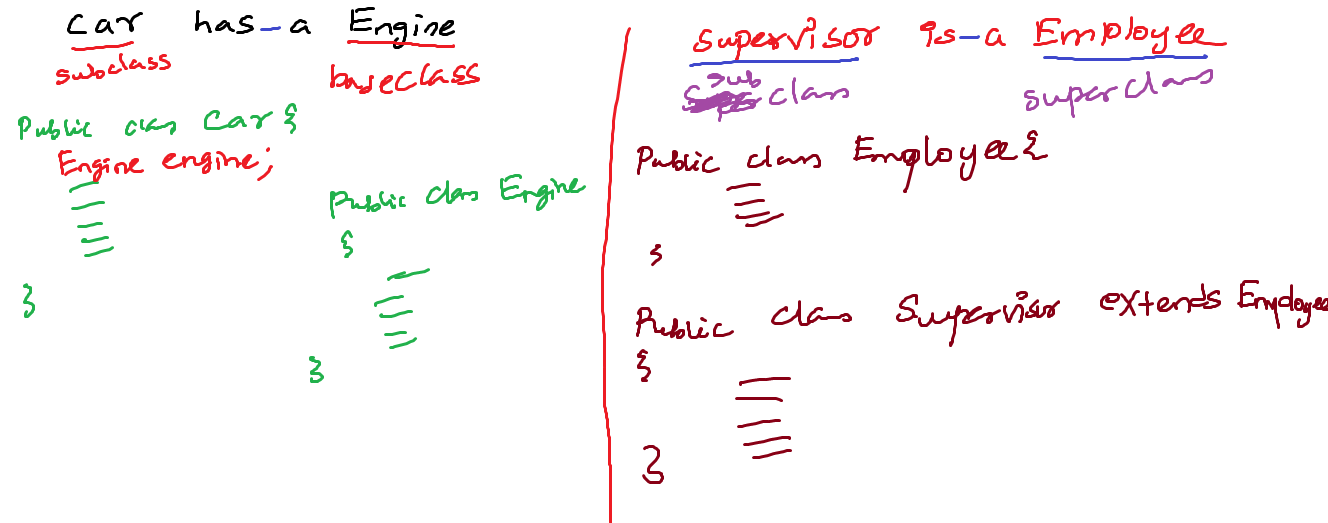 Car has-a Engine
subclass baseclass
Public class Car {
Engine engine;
}
Public class Engine
{
}
Supervisor is-a Employee
sub class superclass
Public class Employee {
}
Public class Supervisor extends Employee
{
}